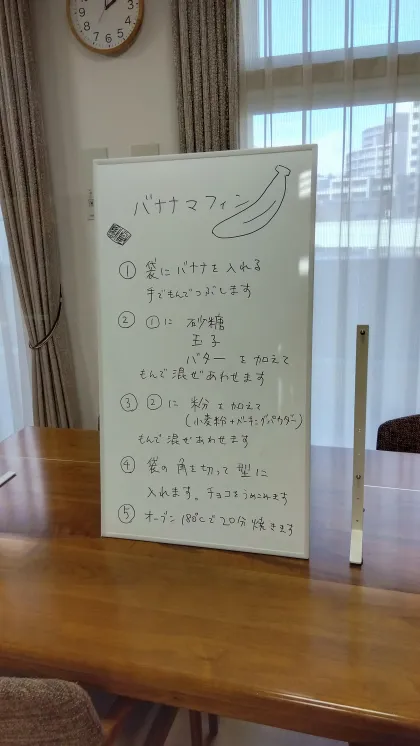 バナナマフィン
① 袋にバナナを入れる
手でもんでつぶします
② ①に 砂糖
玉子
バター を加えて
もんで混ぜあわせます
③ ②に 粉を加えて
(小麦粉+ベーキングパウダー)
もんで混ぜあわせます
④ 袋の角を切って型に
入れます。チョコをうめこみます
⑤ オーブン180℃で20分焼きます